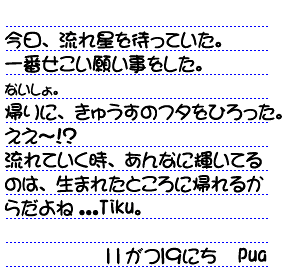 今日、流れ星を待っていた。
一番せこい願い事をした。
ないしょ。
帰りに、きゅうすのフタをひろった。
ええ〜!?
流れていく時、あんなに輝いてる
のは、生まれたところに帰れるか
らだよね...Tiku。
11がつ19にち　Pua